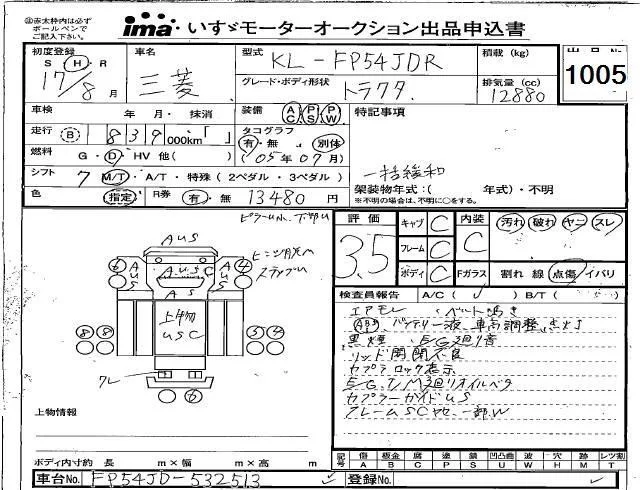 ㊟赤太枠内は必ず
ボールペンで
ご記入下さい。
ima いすゞモーターオークション出品申込書
初度登録 S・H・R 17/8月
車名 三菱
型式 KL-FP54JDR
積載(kg)
1005
グレード・ボディ形状 トラクタ
排気量(cc) 12880
車検 年・月・抹消
装備 AC PS PW
特記事項
走行 B 839000km「 」
タコグラフ 有・無 別体
燃料 G・D・HV 他( )
(05年07月)
一括緩和
シフト 7 M/T・A/T・特殊(2ペダル・3ペダル)
架装物年式:( 年式)・不明
※不明の場合は、不明に○をする。
色 指定
R券 有・無 13480円
評価 3.5
キャブ C
フレーム C
ボディ C
内装 C
汚れ 破れ ヤニ スレ
Fガラス 割れ 線 点傷 イバリ
検査員報告 A/C( ) B/T( )
エアモレ ・ベルト鳴き
ABS、バッテリー液、車高調整、点灯
黒煙 ・E/G廻り音
リッド開閉不良
カプラロック表示
E/G、T/M廻りオイルベタ
カプラーガイドUS
フレームSCヤセ、一部W
AUS
AUSC
AUS
AUS
AS
上物
USC
上物情報
ボディ内寸約 長 m×幅 m×高 m
記号 傷A 板金B 腐C 塗P 錆S 凹凸曲U 波W 穴H 跡M レツ割T
車台No. FP54JD-532513
登録No.